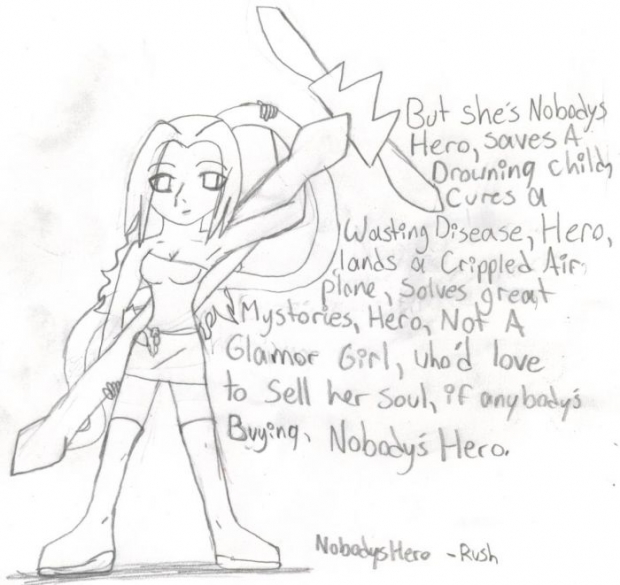 But she's Nobodys
Hero, saves A
Drowning child,
Cures a
Wasting Disease, Hero,
lands a Crippled Air
plane, Solves great
Mysteries, Hero, Not A
Glamor Girl, who'd love
to Sell her Soul, if anybody's
Buying, Nobody's Hero.
NobodysHero - Rush